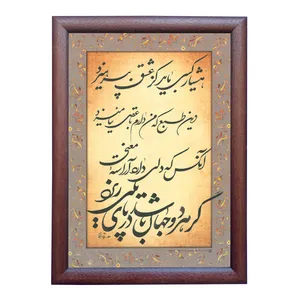 هشیار کسی باید کز عشق بپرهیزد
وین طبع که من دارم با عقل نیامیزد
آنکس که دلی دارد آراسته معنی
گر هر دو جهان باشد در پای یکی ریزد